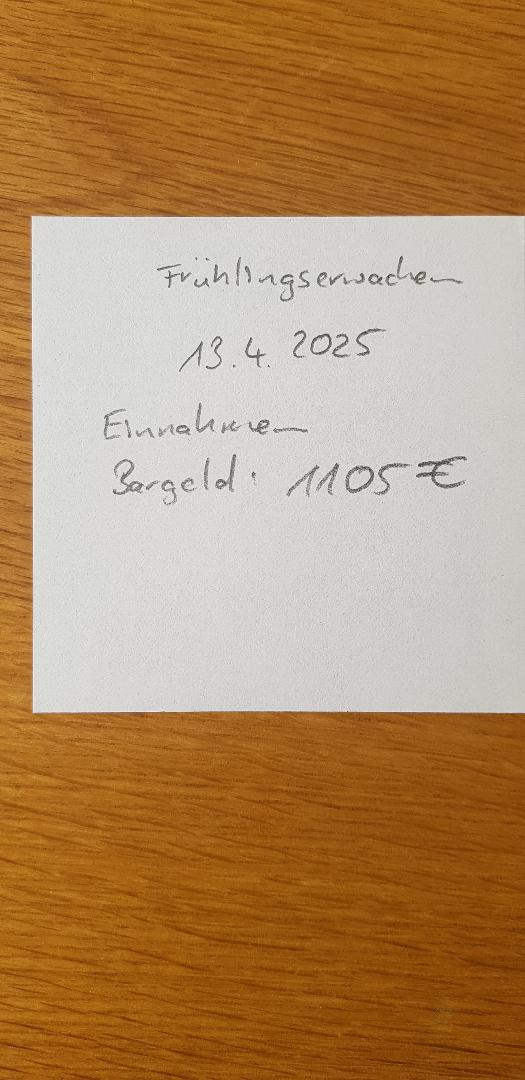 Frühlingserwachen
13.4.2025
Einnahmen
Bargeld: 1105 €